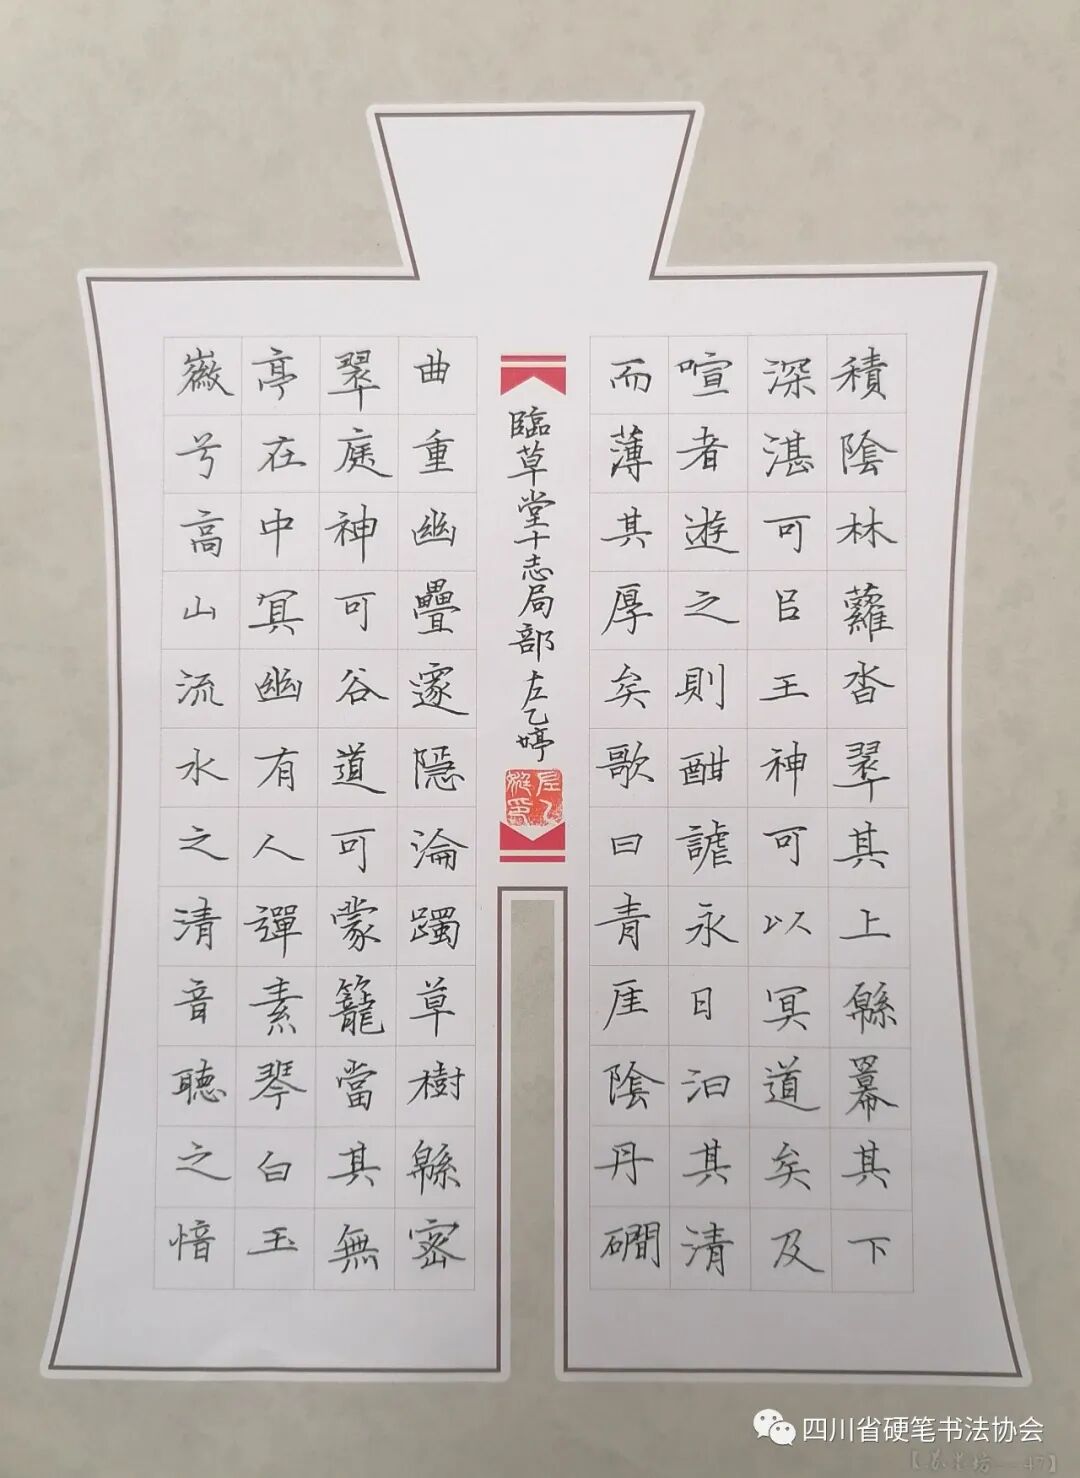 積陰林蘿沓翠其上緜羃其下
深湛可㠯王神可以冥道矣及
喧者遊之則酣謔永日汩其清
而薄其厚矣歌曰青厓陰丹磵
曲重幽疊邃隱淪躅草樹緜密
翠㡣神可谷道可蒙籠當其無
亭在中冥幽有人彈素琴白玉
徽兮高山流水之清音聽之愔
臨草堂十志局部 左乙婷
四川省硬笔书法协会